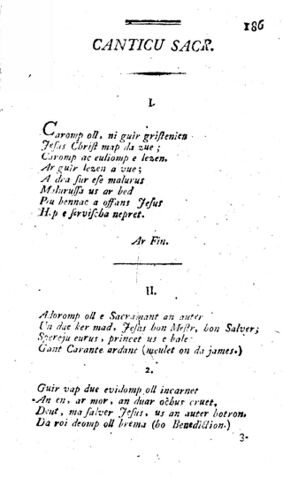 186
CANTICU SACR.
I.
Caromp oll, ni guir griſtenien
Jeſus Chriſt map da zue;
Caromp ac euliomp e lezen.
Ar guir lezen a vue;
A dra ſur eſe malurus
Malurußa us ar bed
Pau bennac a offans Jeſus
Hep e ſerviſcha nepret.
Ar Fin.
II.
Adoromp oll e Sacramant an auter
Un due ker mad, Jeſus bon Meſtr, bon Salver;
Spereju eurus, princet us e bale
Gant Carante ardant (meulet on da james.)
2.
Guir vap due evidomp oll incarnet
An en, ar mor, an duar ocbus cruet,
Deut, ma ſalver Jeſus, us an auter botron,
Da roi deomp oll brema (ho Benediction.)
3-